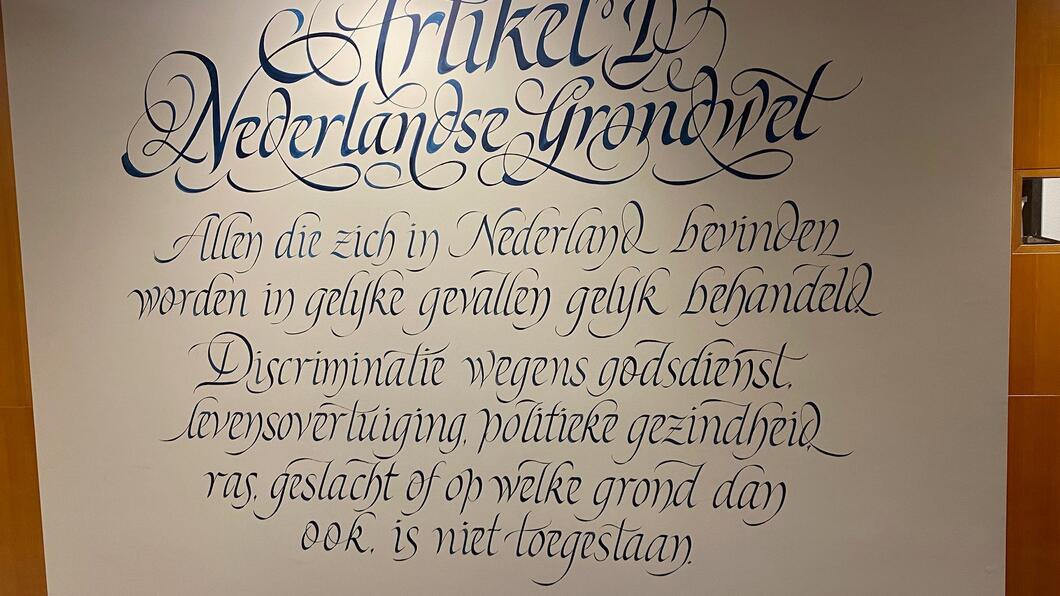 Artikel 1
Nederlandse Grondwet
Allen die zich in Nederland bevinden,
worden in gelijke gevallen gelijk behandeld.
Discriminatie wegens godsdienst,
levensovertuiging, politieke gezindheid,
ras, geslacht of op welke grond dan
ook, is niet toegestaan.